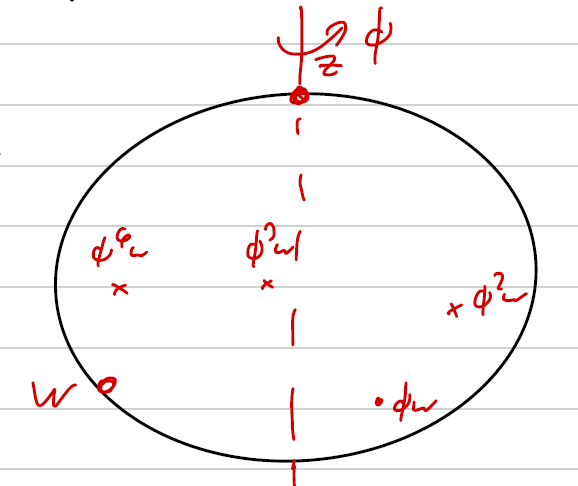 ϕ
z
ϕ⁴w
ϕ³w
ϕ²w
w
ϕw